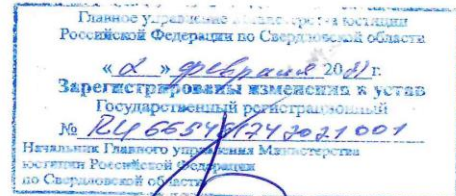 Главное управление Министерства юстиции
Российской Федерации по Свердловской области
« 2 » февраля 2021 г.
Зарегистрированы изменения в устав
Государственный регистрационный
№ RU 6654801742021001
Начальник Главного управления Министерства
юстиции Российской Федерации
по Свердловской области